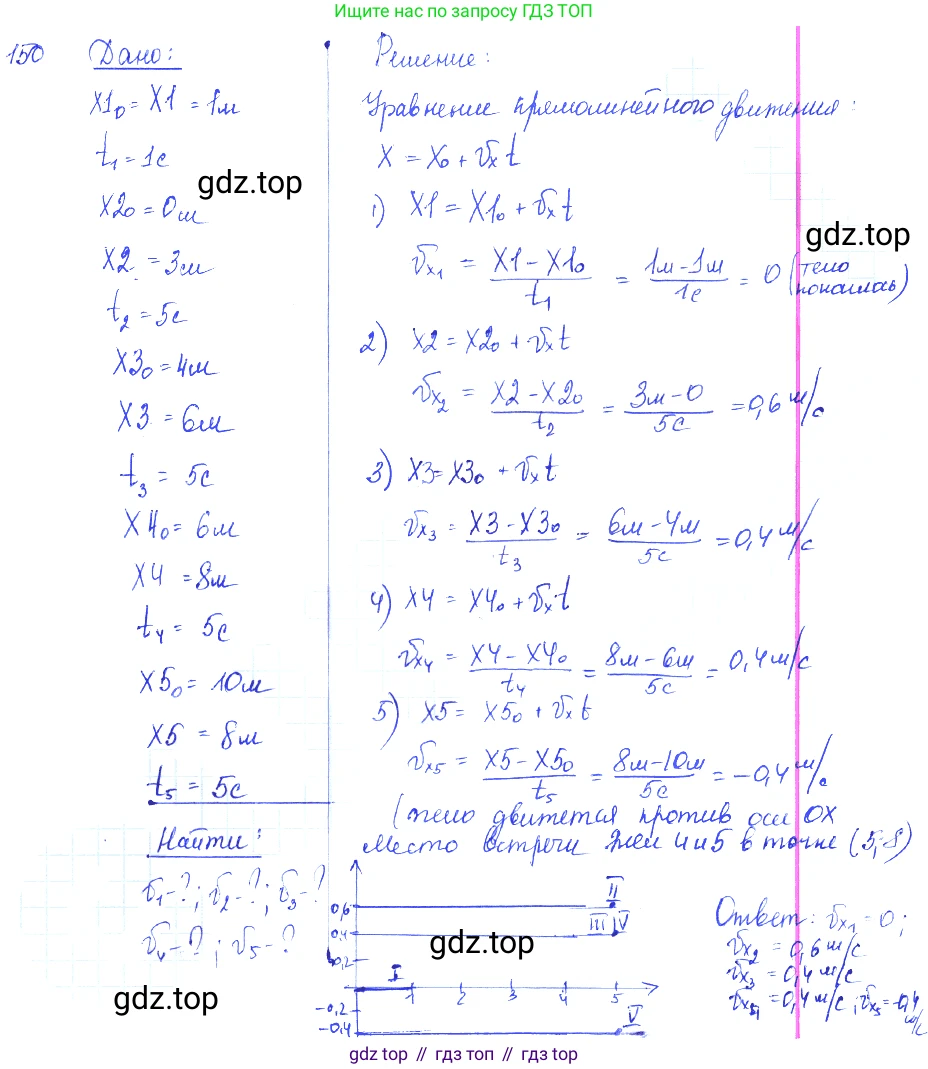 Ищите нас по запросу ГДЗ ТОП
150 Дано:
x1₀ = x1 = 1м
t₁ = 1с
x2₀ = 0м
x2 = 3м
t₂ = 5с
x3₀ = 4м
x3 = 6м
t₃ = 5с
x4₀ = 6м
x4 = 8м
t₄ = 5с
x5₀ = 10м
x5 = 8м
t₅ = 5с
Найти:
v₁-?; v₂-?; v₃-?
v₄-?; v₅-?
Решение:
Уравнение прямолинейного движения:
x = x₀ + vₓt
1) x1 = x1₀ + vₓt
vₓ₁ = (x1 - x1₀)/t₁ = (1м - 1м)/1с = 0 (тело покоилась)
2) x2 = x2₀ + vₓt
vₓ₂ = (x2 - x2₀)/t₂ = (3м - 0)/5с = 0,6 м/с
3) x3 = x3₀ + vₓt
vₓ₃ = (x3 - x3₀)/t₃ = (6м - 4м)/5с = 0,4 м/с
4) x4 = x4₀ + vₓt
vₓ₄ = (x4 - x4₀)/t₄ = (8м - 6м)/5с = 0,4 м/с
5) x5 = x5₀ + vₓt
vₓ₅ = (x5 - x5₀)/t₅ = (8м - 10м)/5с = -0,4 м/с
(тело движется против оси OX
Место встречи тел 4 и 5 в точке (5,8)
II
0,6
III IV
0,4
0,2
I
1 2 3 4 5
-0,2
V
-0,4
Ответ: vₓ₁ = 0;
vₓ₂ = 0,6 м/с
vₓ₃ = 0,4 м/с
vₓ₄ = 0,4 м/с; vₓ₅ = -0,4 м/с
gdz.top
gdz.top
gdz.top
gdz.top
gdz top // гдз топ // gdz top